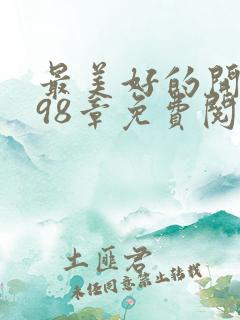 最美好的開
98章免費閱
土匪君
未经同意禁止转载